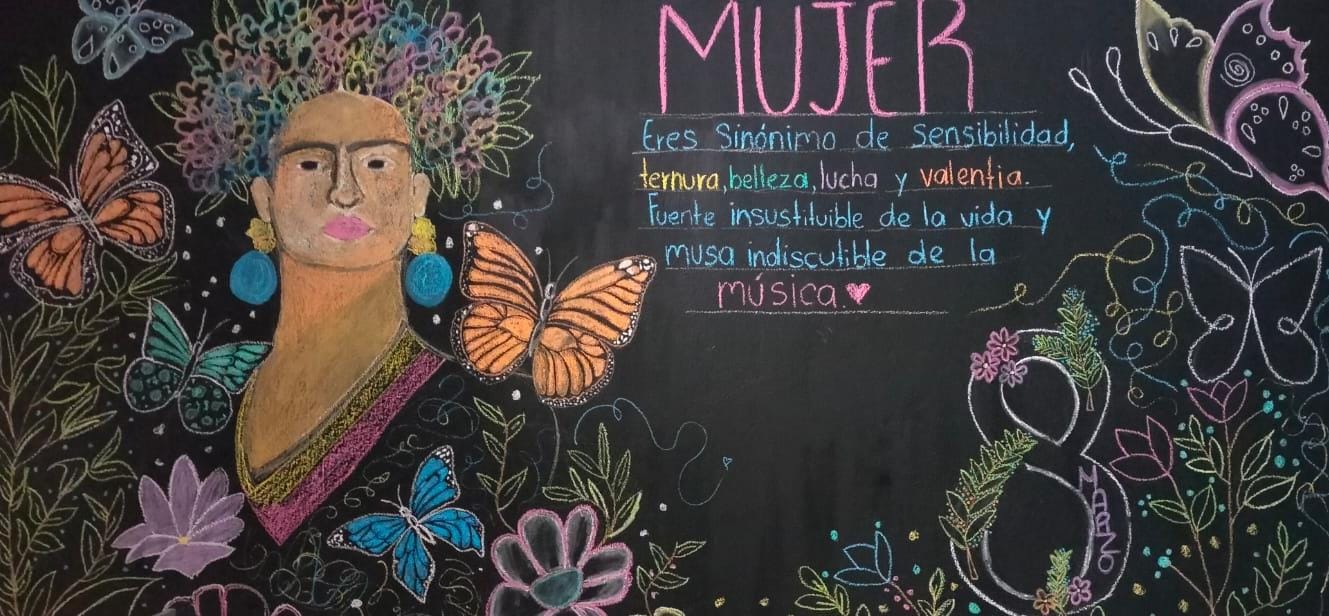 MUJER
Eres Sinónimo de Sensibilidad,
ternura, belleza, lucha y valentia.
Fuente insustituible de la vida y
musa indiscutible de la
música ♥
8
MARZO